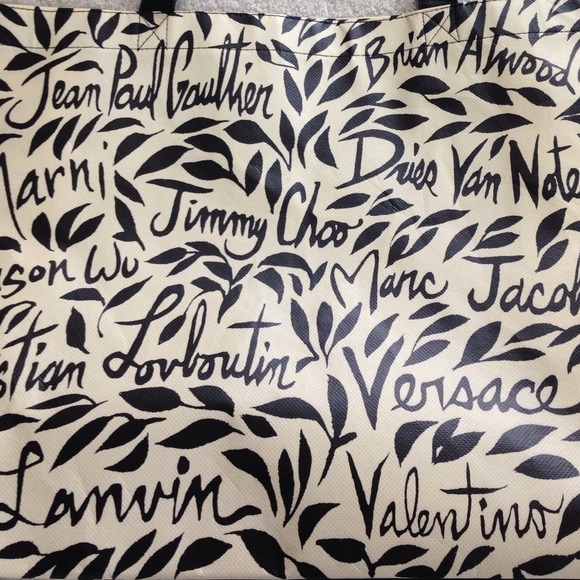 Jean Paul Gaultier
Brian Atwood
Marni
Jimmy Choo
Dries Van Note
ason Wu
Marc Jacob
stian Louboutin
Versace
Lanvin
Valentino